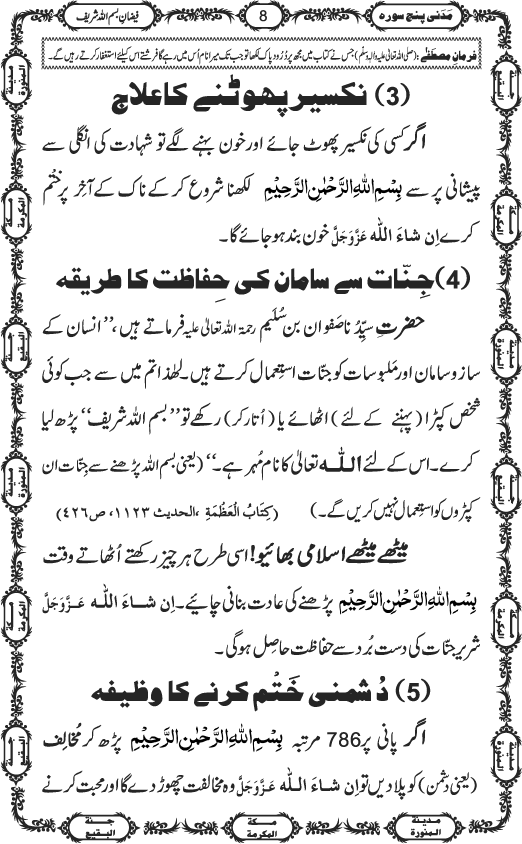 مَدَنی پنج سورہ
8
فیضانِ بسم اللہ شریف
فرمانِ مصطفٰے: (صلی اللہ تعالیٰ علیہ واٰلہٖ وسلم) جس نے کتاب میں مجھ پر دُرود پاک لکھا تو جب تک میرا نام اُس میں رہے گا فرشتے اس کیلئے استغفار کرتے رہیں گے۔
(3) نکسیر پھوٹنے کا علاج
اگر کسی کی نکسیر پھوٹ جائے اور خون بہنے لگے تو شہادت کی انگلی سے
پیشانی پر سے بِسْمِ اللهِ الرَّحْمٰنِ الرَّحِيْمِ لکھنا شروع کر کے ناک کے آخِر پر خَتْم
کرے اِن شاءَ اللّٰه عَزَّوَجَلَّ خون بند ہو جائے گا۔
(4) جِنّات سے سامان کی حِفاظت کا طریقہ
حضرتِ سیِّدُنا صَفوان بن سُلَیم رحمۃ اللہ تعالیٰ علیہ فرماتے ہیں، ’’انسان کے
سازوسامان اور مَلبوسات کو جنّات استِعمال کرتے ہیں۔ لہٰذا تم میں سے جب کوئی
شخص کپڑا (پہننے کے لئے) اٹھائے یا (اُتار کر) رکھے تو ’’بسم اللہ شریف‘‘ پڑھ لیا
کرے۔ اس کے لئے اللّٰه تعالیٰ کا نام مُہر ہے۔‘‘ (یعنی بسم اللہ پڑھنے سے جنّات ان
کپڑوں کو استِعمال نہیں کریں گے۔) (کِتابُ الْعَظَمَةِ ،الحدیث ۱۱۲۳، ص۴۲۶)
میٹھے میٹھے اسلامی بھائیو! اسی طرح ہر چیز رکھتے اُٹھاتے وقت
بِسْمِ اللهِ الرَّحْمٰنِ الرَّحِيْمِ پڑھنے کی عادت بنانی چاہیے۔ اِن شاءَ اللّٰه عَزَّوَجَلَّ
شریر جنّات کی دست بُرد سے حفاظت حاصِل ہوگی۔
(5) دُشمنی خَتْم کرنے کا وظیفہ
اگر پانی پر 786 مرتبہ بِسْمِ اللهِ الرَّحْمٰنِ الرَّحِيْمِ پڑھ کر مُخالِف
(یعنی دشمن) کو پلادیں تو اِن شاءَ اللّٰه عَزَّوَجَلَّ وہ مخالفت چھوڑ دے گا اور محبت کرنے
مدینۃ المنورۃ
مکۃ المکرمۃ
جنۃ البقیع
مدینۃ المنورۃ
مکۃ المکرمۃ
جنۃ البقیع
جنۃ البقیع
مکۃ المکرمۃ
مدینۃ المنورۃ
جنۃ البقیع
مکۃ المکرمۃ
مدینۃ المنورۃ
مدینۃ المنورۃ
مکۃ المکرمۃ
جنۃ البقیع